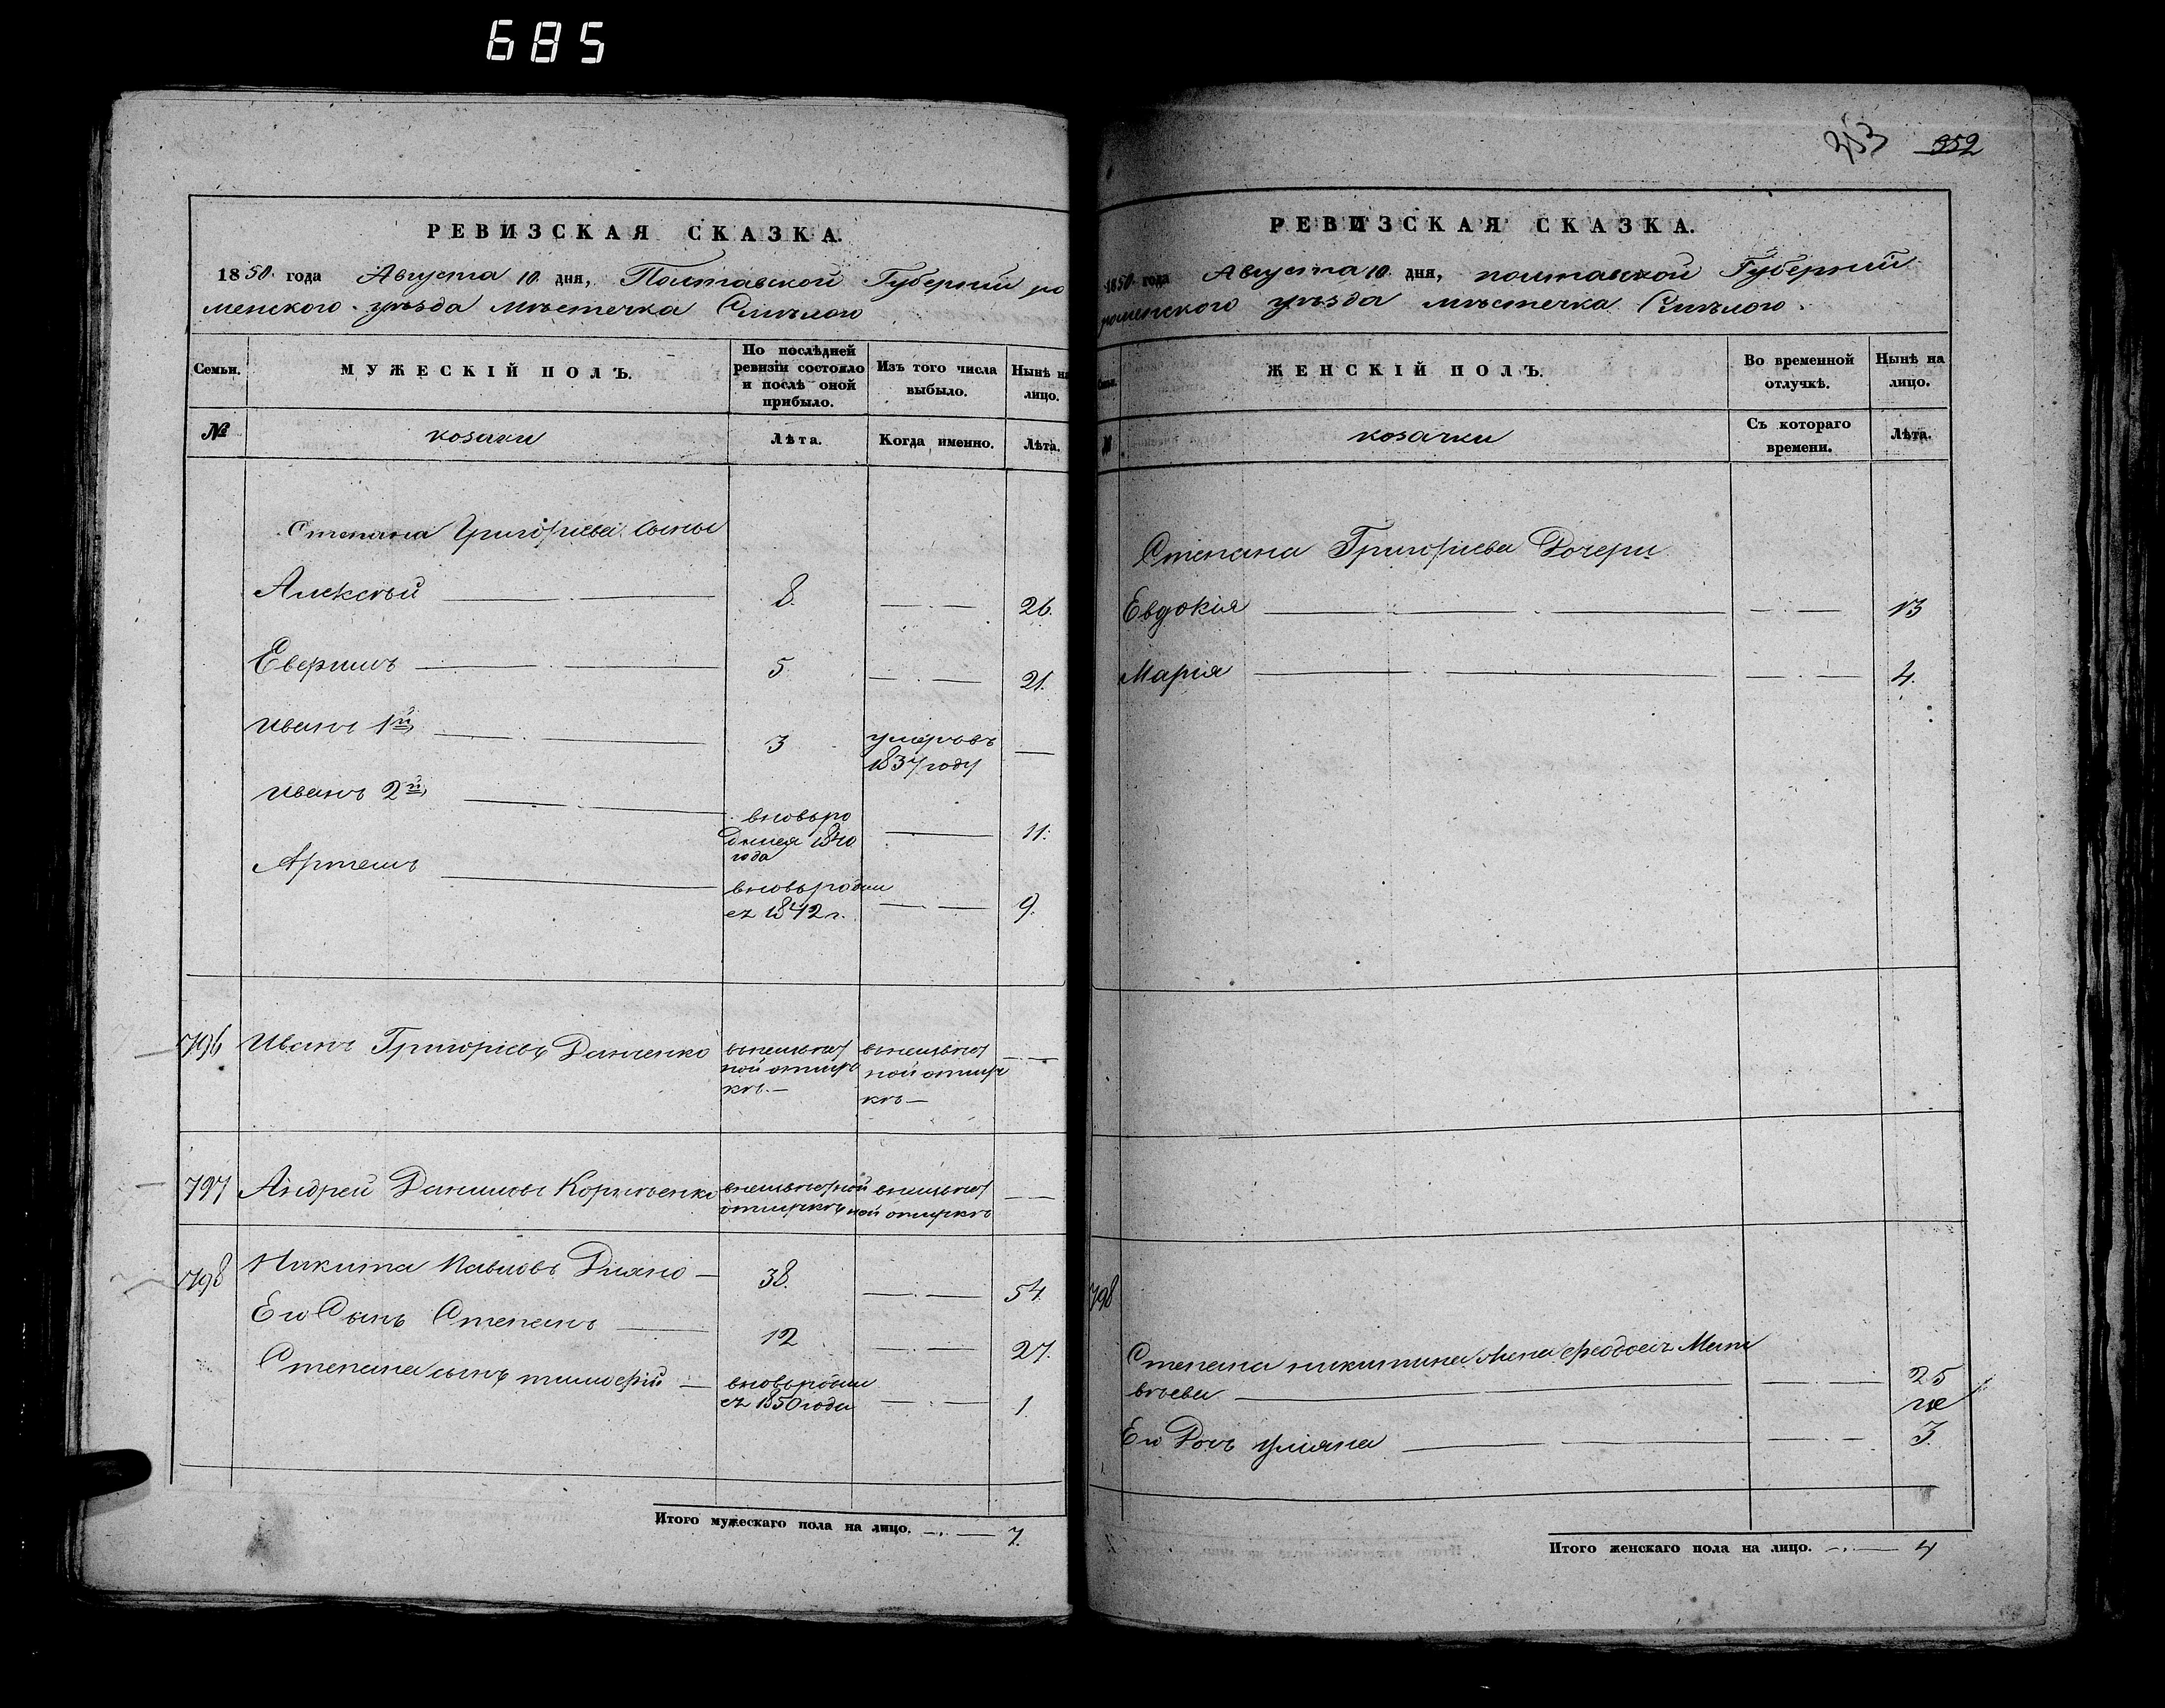 685
РЕВИЗСКАЯ СКАЗКА.
1850. года Августа 10. дня, Полтавской Губерніи ро
менского уѣзда мѣстечка Смѣлого
Семьи.
МУЖЕСКІЙ ПОЛЪ.
По послѣдней ревизіи состояло и послѣ оной прибыло.
Изъ того числа выбыло.
Нынѣ на лицо.
№
козаки
Лѣта.
Когда именно.
Лѣта.
Степана Григорьева сыны
Алексѣй 8. 26.
Иванъ 1й 3 умеръ въ
1837 году
5 21.
Иванъ 2й вновь ро
дился 1840
года 11.
Артемъ вновь родил
ся 1842 г. 9.
796 Иванъ Григорьевъ Данченко
797 Андрей Даниловъ
798 Никита Павловъ 38. 54.
Его Сынъ Степанъ 12 27.
Степана сынъ тимофѣй вновь родил
ся 1850 года 1.
Итого мужескаго пола на лицо. 7.
253 352
РЕВИЗСКАЯ СКАЗКА.
1850 года Августа 10. дня, полтавской Губерніи
роменского уѣзда мѣстечка Смѣлого.
Семьи.
ЖЕНСКІЙ ПОЛЪ.
Во временной отлучкѣ.
Нынѣ на лицо.
№
козачки
Съ котораго времени.
Лѣта.
Степана Григорьева Дочери
Евдокія 13
Марія 4.
798
Степана никитина жена феодосія Мат
вѣева 25
Его Дочь уліяна 3.
Итого женскаго пола на лицо. 4